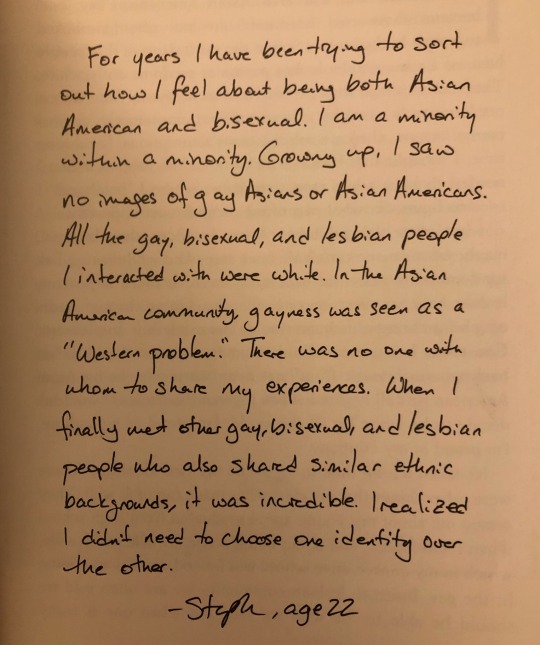 For years I have been trying to sort
out how I feel about being both Asian
American and bisexual. I am a minority
within a minority. Growing up, I saw
no images of gay Asians or Asian Americans.
All the gay, bisexual, and lesbian people
I interacted with were white. In the Asian
American community, gayness was seen as a
"Western problem." There was no one with
whom to share my experiences. When I
finally met other gay, bisexual, and lesbian
people who also shared similar ethnic
backgrounds, it was incredible. I realized
I didn't need to choose one identity over
the other.
-Steph, age 22